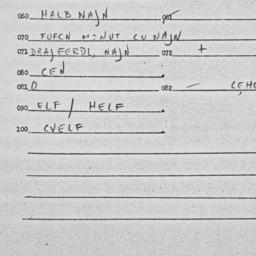 060 HALB NAJN 061
070 FUFCN M:NUT CU NAJN
071 DRAJFERDL, NAJN 072 +
080 CEN
081 0 082 — CEHC
090 ELF / HELF
100 CVELF